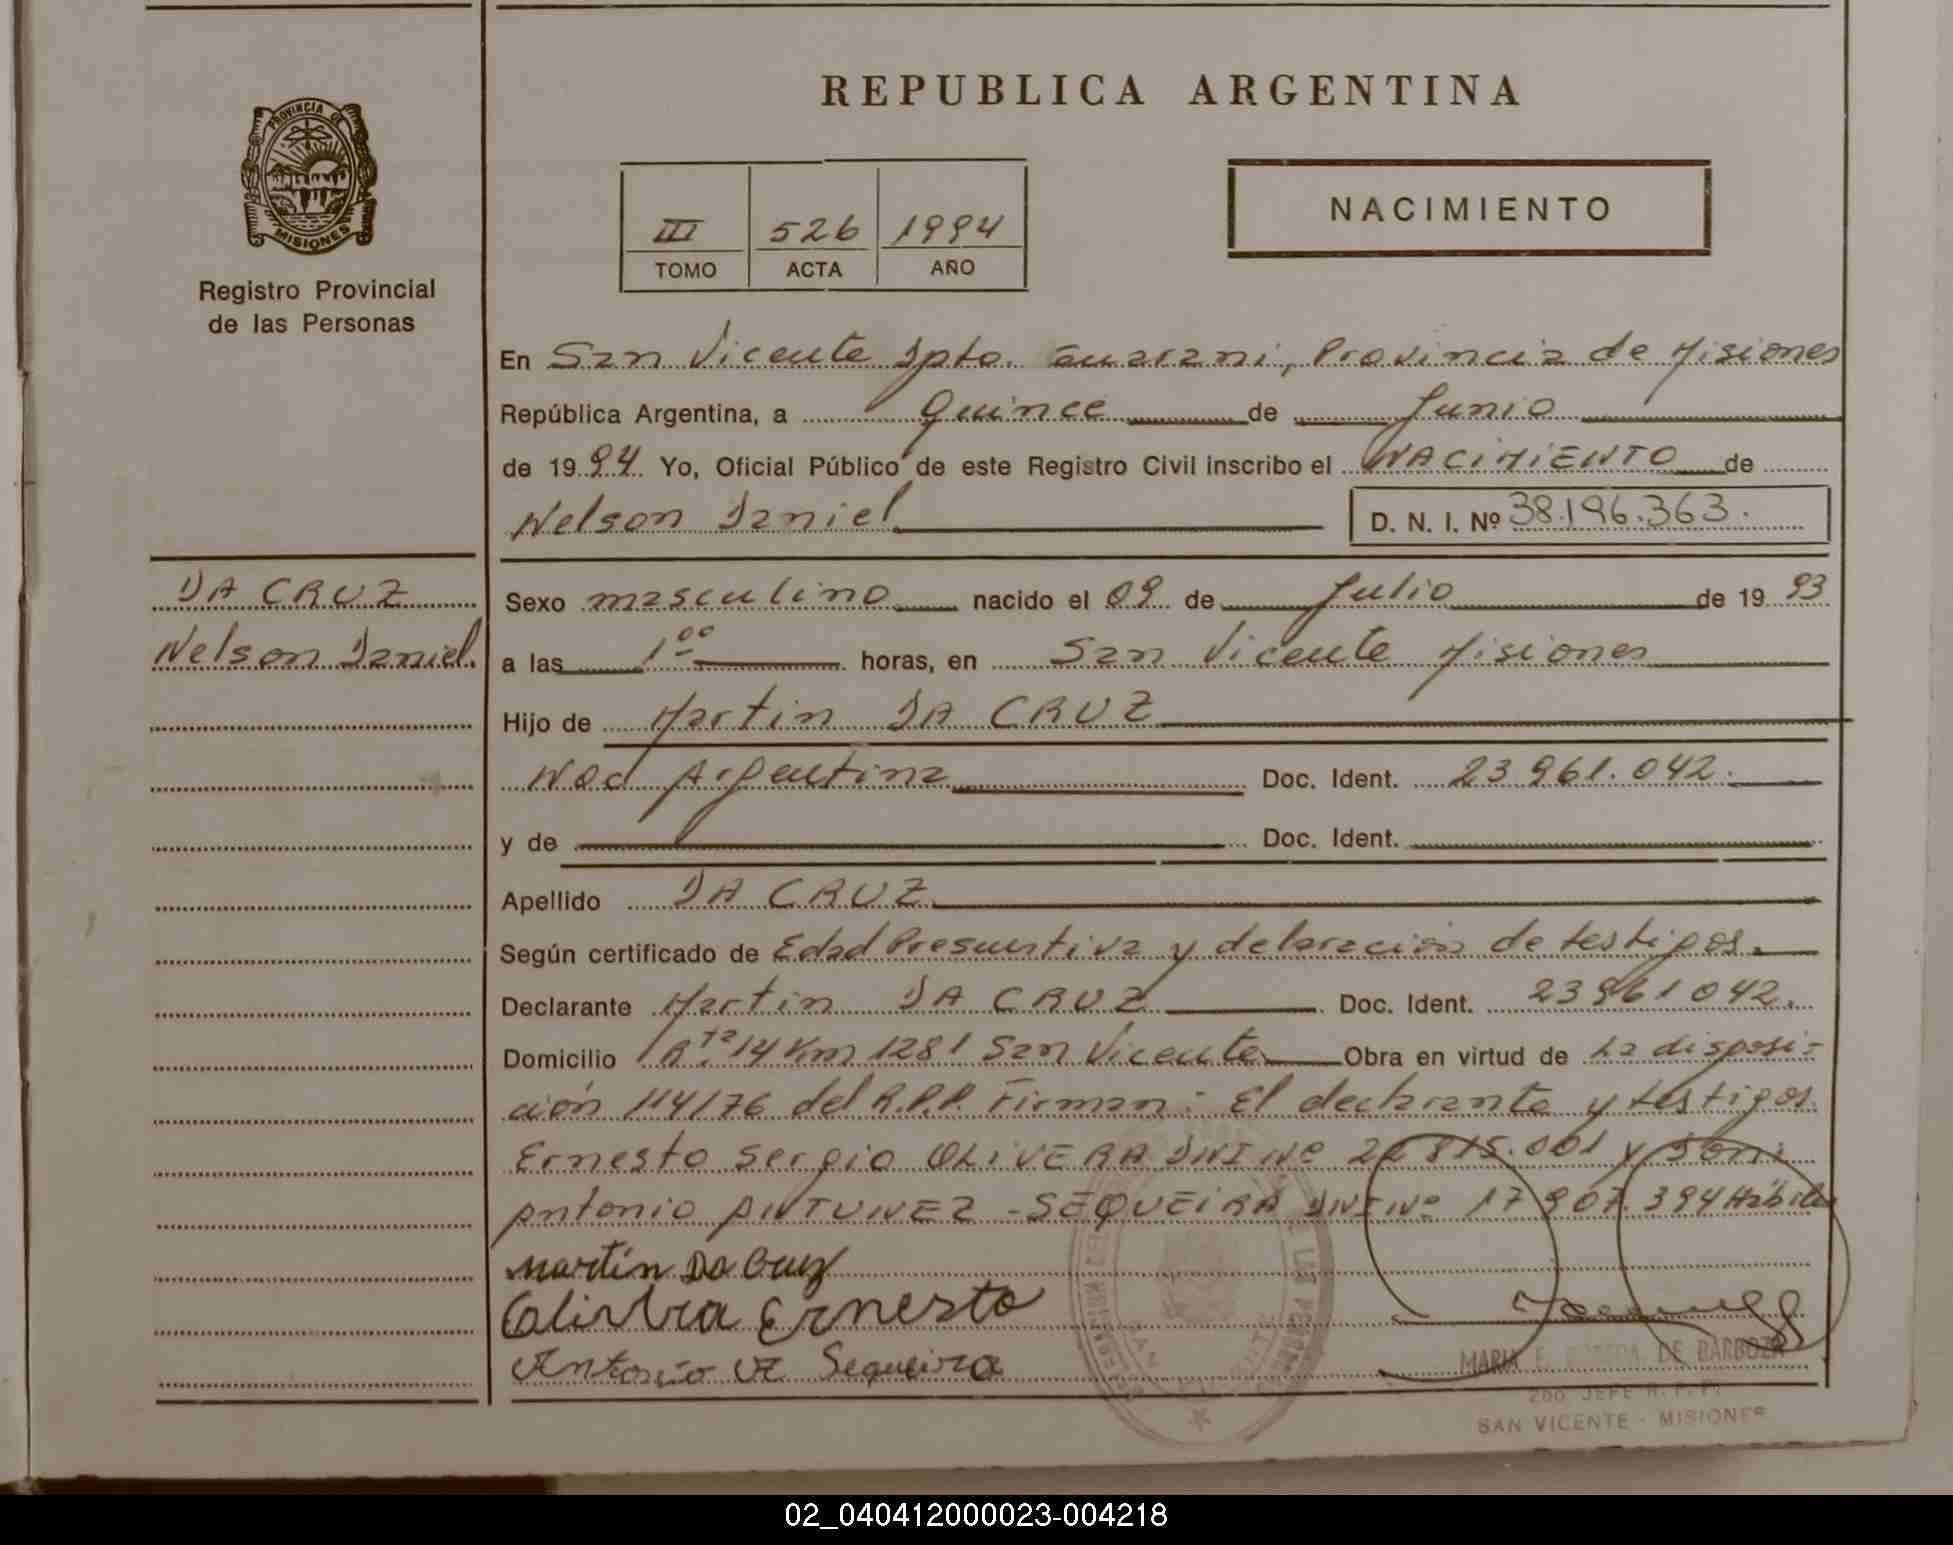 REPUBLICA ARGENTINA
PROVINCIA DE MISIONES
Registro Provincial
de las Personas
III 526 1994
TOMO ACTA AÑO
NACIMIENTO
En San Vicente Dpto. Guarani, Provincia de Misiones
República Argentina, a Quince de Junio
de 1994 Yo, Oficial Público de este Registro Civil inscribo el NACIMIENTO de
Nelson Daniel D. N. I. Nº 38.196.363.
DA CRUZ
Nelson Daniel.
Sexo masculino nacido el 09 de Julio de 1993
a las 1 00 horas, en San Vicente Misiones
Hijo de Martin DA CRUZ
Nac Argentina Doc. Ident. 23.961.042.
y de Doc. Ident.
Apellido DA CRUZ
Según certificado de Edad Presuntiva y delaración de testigos.
Declarante Martin DA CRUZ Doc. Ident. 23961042.
Domicilio Rta. 14 Km 1281 San Vicente Obra en virtud de La disposi-
ción 114/76 del R.P.P. Firman: El declarante y testigos
Ernesto Sergio OLIVERA DNI Nº 815.001 y
Antonio ANTUNEZ - SEQUEIRA DNI Nº 17.907.394 Hábiles
Martin Da Cruz
Olivera Ernesto
Antonio Sequeira
MARIA E. DE BARBOZA
2do. JEFE R. P. P.
SAN VICENTE - MISIONES
02_040412000023-004218